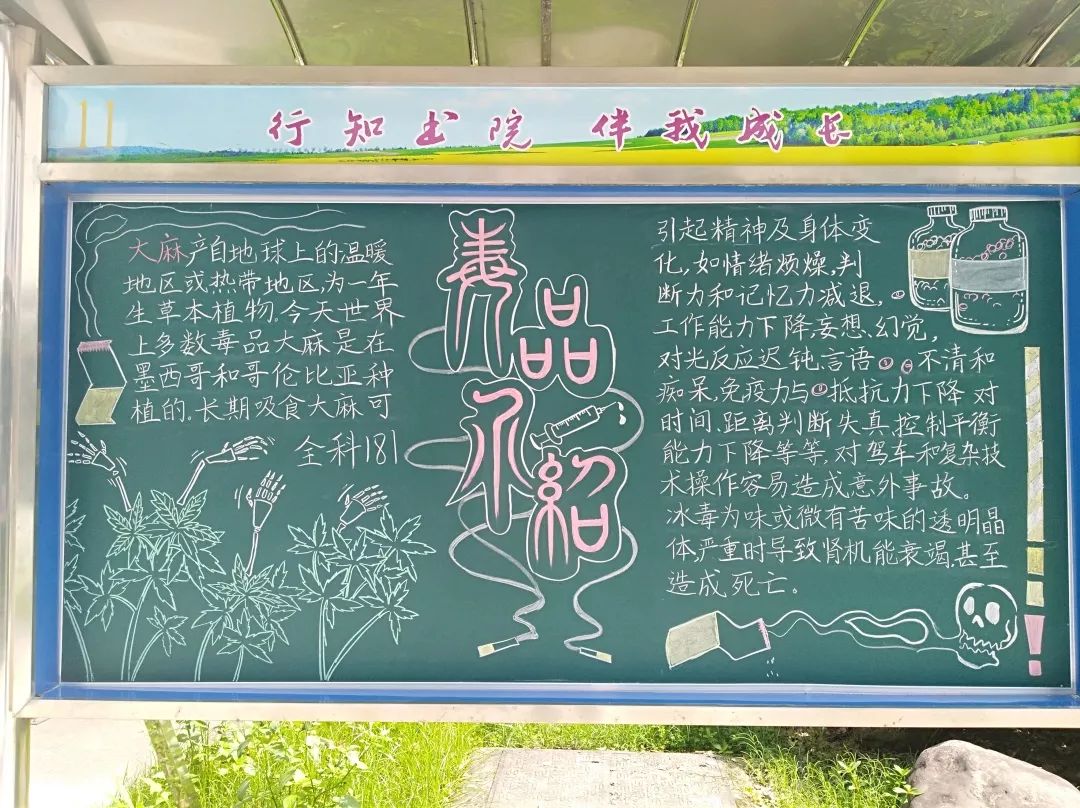 11
行知书院 伴我成长
大麻产自地球上的温暖
地区或热带地区,为一年
生草本植物。今天世界
上多数毒品大麻是在
墨西哥和哥伦比亚种
植的。长期吸食大麻可
全科181
毒品介绍
引起精神及身体变
化,如情绪烦燥,判
断力和记忆力减退,
工作能力下降,妄想、幻觉,
对光反应迟钝、言语不清和
痴呆,免疫力与抵抗力下降 对
时间、距离判断失真,控制平衡
能力下降等等,对驾车和复杂技
术操作容易造成意外事故。
冰毒为味或微有苦味的透明晶
体,严重时导致肾机能衰竭,甚至
造成死亡。